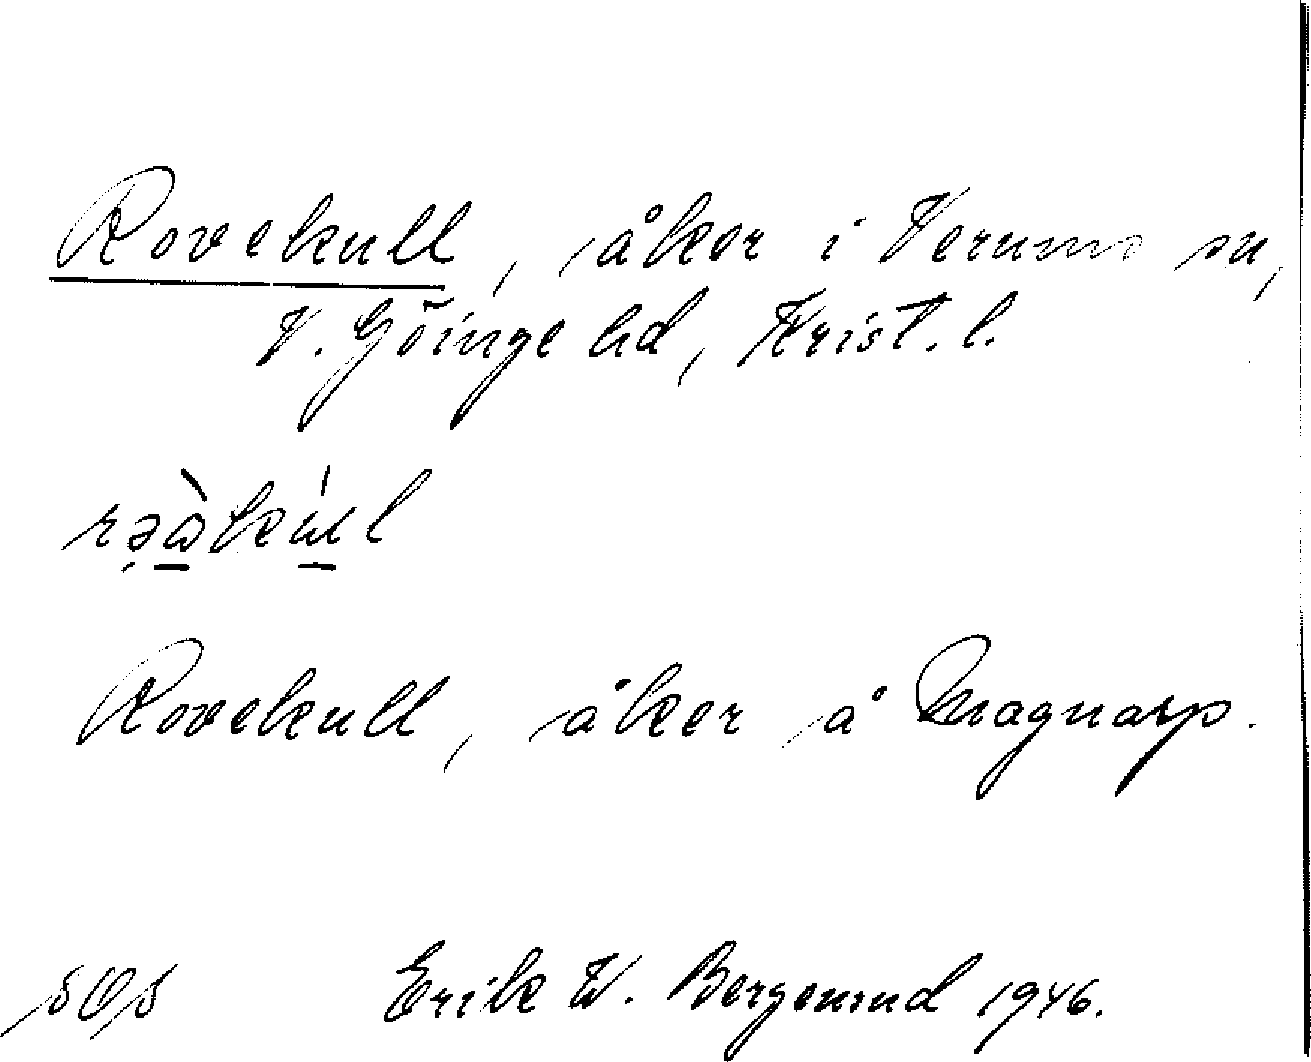 Rovekull, åker i Verums sn,
V. Göinge hd, Krist. l.
Rovekull, åker å Magnarp.
Erik W. Bergerund 1946.